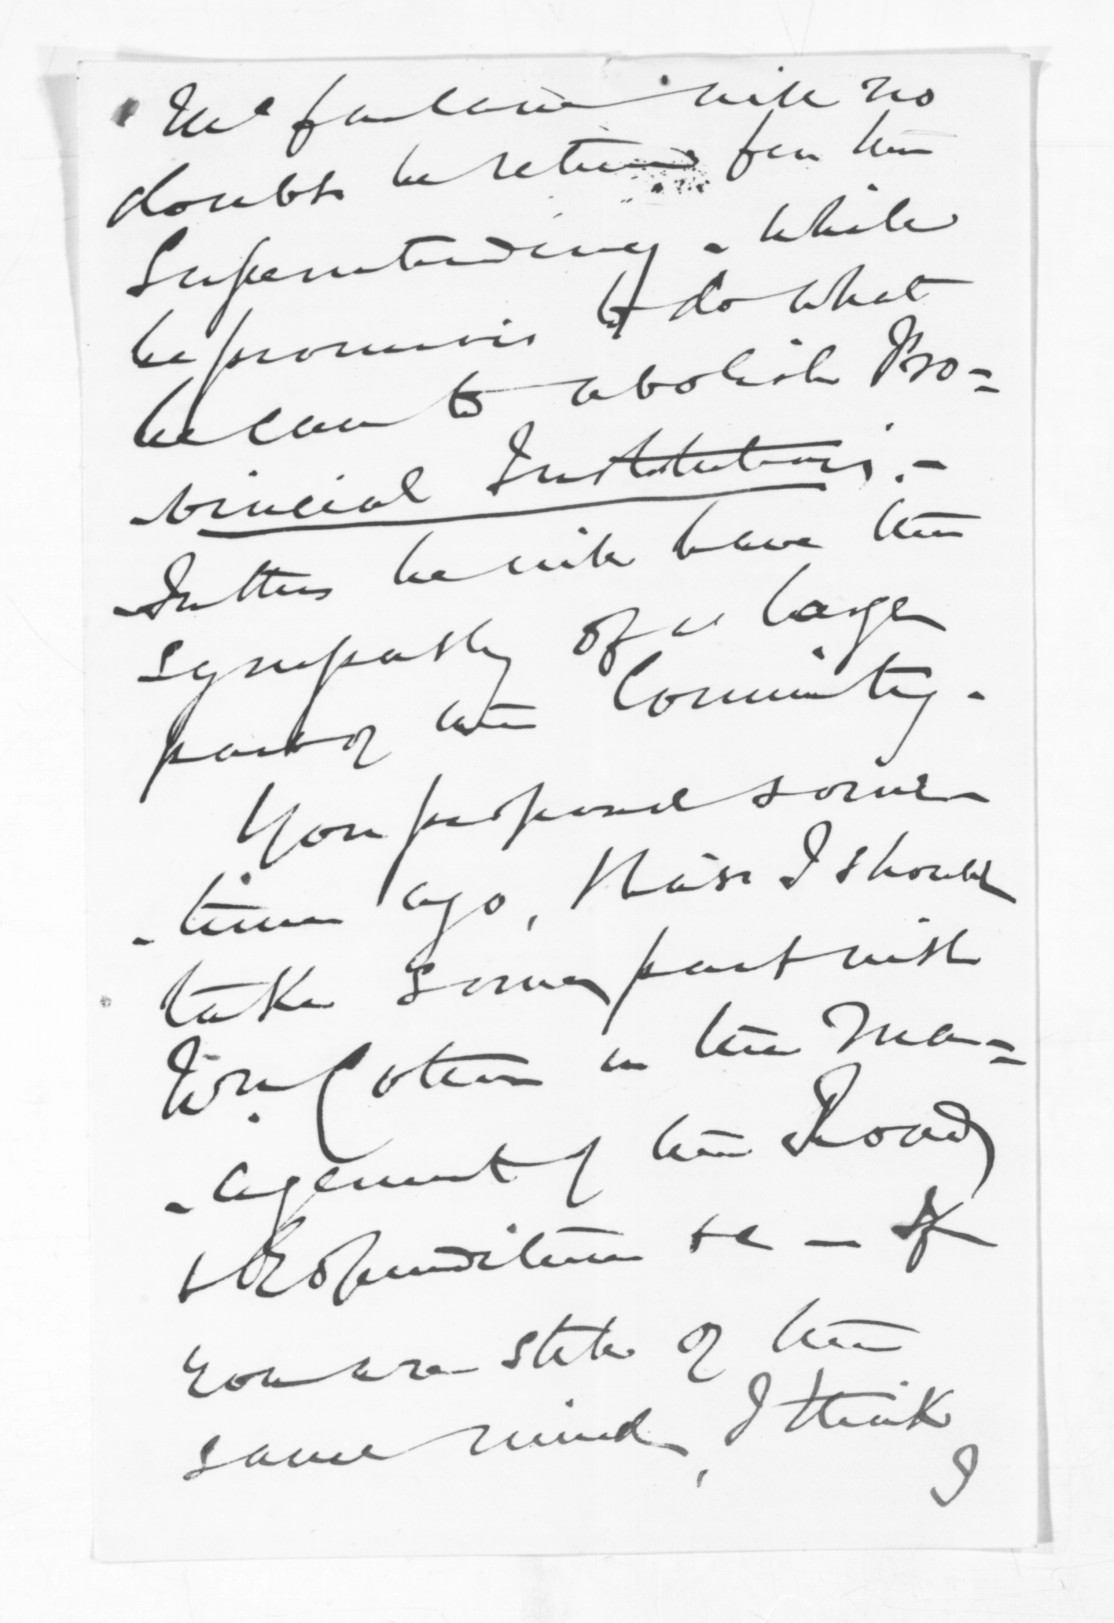 McFarlane will no
doubt be returned for the
Superintendency - while
he promises to do what
he can to abolish Pro=
-vincial Institutions. -
- In this he will have the
sympathy of a large
part of the Community -
You proposed some
- time ago, that I should
take some part with
Wm Cotton in the Ma=
- agement of the Road
& Expenditure &c - If
you are still of the
same mind, I think
I